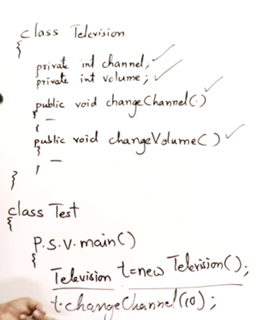 class Television
{
private int channel,
private int volume;
public void changeChannel(.)
{
—
}
public void changeVolume()
{
—
}
}
class Test
P.S.V. main()
{
Television t=new Television();
t.changeChannel(10);